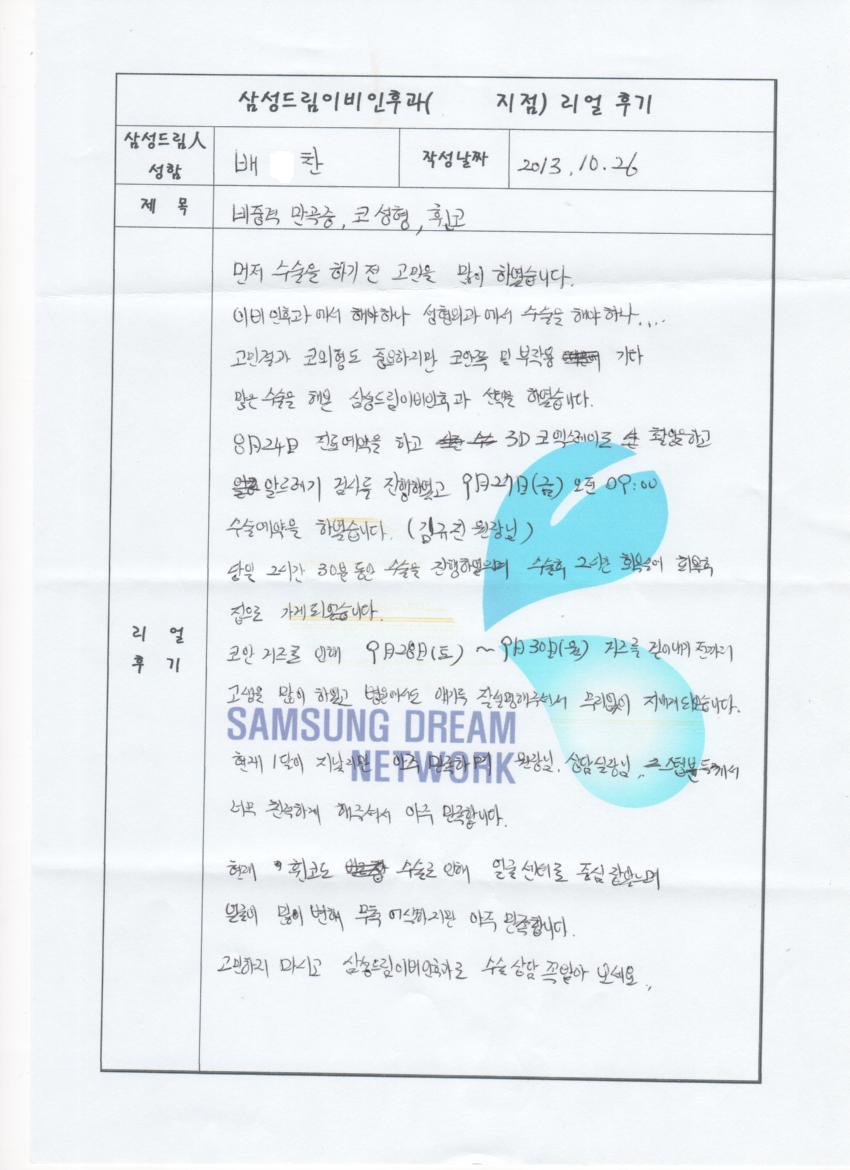 삼성드림이비인후과( 지점) 리얼 후기
삼성드림人 성함
배 찬
작성날짜
2013.10.26
제 목
비중격 만곡증, 코 성형, 휜코
리 얼 후 기
먼저 수술을 하기 전 고민을 많이 하였습니다.
이비인후과에서 해야하나 성형외과에서 수술을 해야 하나....
고민결과 코외형도 중요하지만 코안쪽 및 부작용 기타
많은 수술을 해온 삼성드림이비인후과 선택을 하였습니다.
8月24日 진료예약을 하고 3D 코 엑스레이로 촬영을하고
알르레기 검사를 진행하였고 9月27日(금) 오전 09:00
수술예약을 하였습니다. (김규진 원장님)
당일 2시간 30분 동안 수술을 진행하였으며 수술후 2시간 회복후
집으로 가게되었습니다.
코안 거즈로 인해 9月28日(토) ~ 9月30日(월) 거즈를 전까지
고생을 많이 하였고 병원에서도 얘기를 잘설명해주셔서 무리없이 지내게되었습니다.
SAMSUNG DREAM
NETWORK
현재 1달이 지났지만 아주 만족하며 원장님, 상담실장님, 스텝분들께서
너무 친절하게 해주셔서 아주 만족합니다.
현재 휜코도 수술로 인해 얼굴센터로 중심
얼굴이 많이 변해 무척 어색하지만 아주 만족합니다.
고민하지 마시고 삼성드림이비인후과로 수술 상담 꼭받아 보세요.,